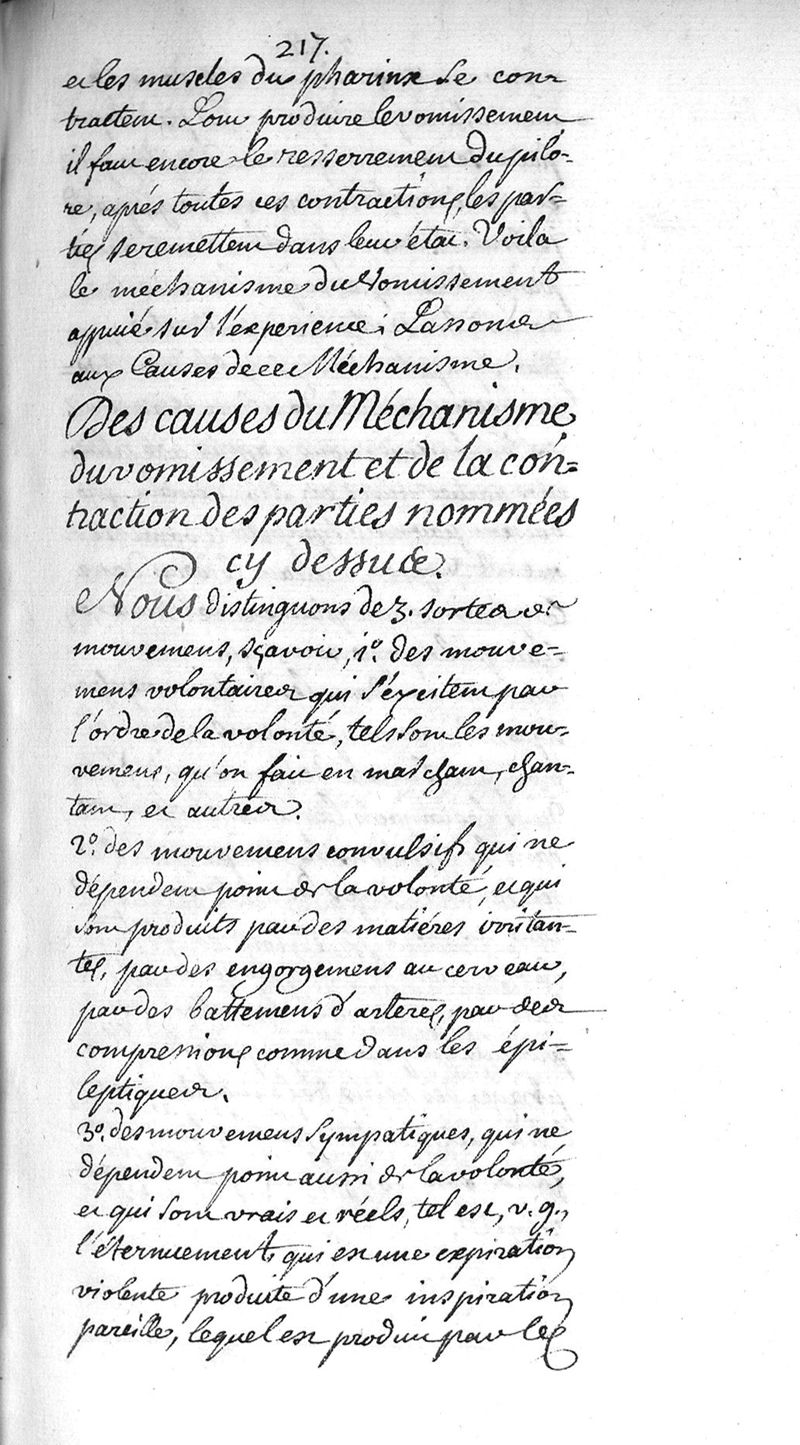 217.
et les muscles du pharinx se con-
tractent. Pour produire le vomissement
il faut encore le resserrement du pilo-
re, aprés toutes ces contractions, les par-
ties se remettent dans leur état. Voila
le méchanisme du vomissement
appuié sur l'experience; Passons
aux Causes de ce Méchanisme.
Des causes du Méchanisme
du vomissement et de la con=
traction des parties nommées
cy dessus.
Nous distinguons de 3. sortes de
mouvemens, sçavoir, 1º. des mouve=
mens volontaires qui s'éxcitent par
l'ordre de la volonté, tels sont les mou-
vemens, qu'on fait en marchant, chan-
tant, et autres.
2º. des mouvemens convulsifs qui ne
dépendent point de la volonté, et qui
sont produits par des matiéres irritan-
tes, par des engorgemens au cerveau,
par des battemens d'arteres, par des
compressions comme dans les épi=
leptiques.
3º. des mouvemens sympatiques, qui ne
dépendent point aussi de la volonté,
et qui sont vrais et réels, tel est, v. g.,
l'éternuement, qui est une expiration
violente produite d'une inspiration
pareille, lequel est produit par les